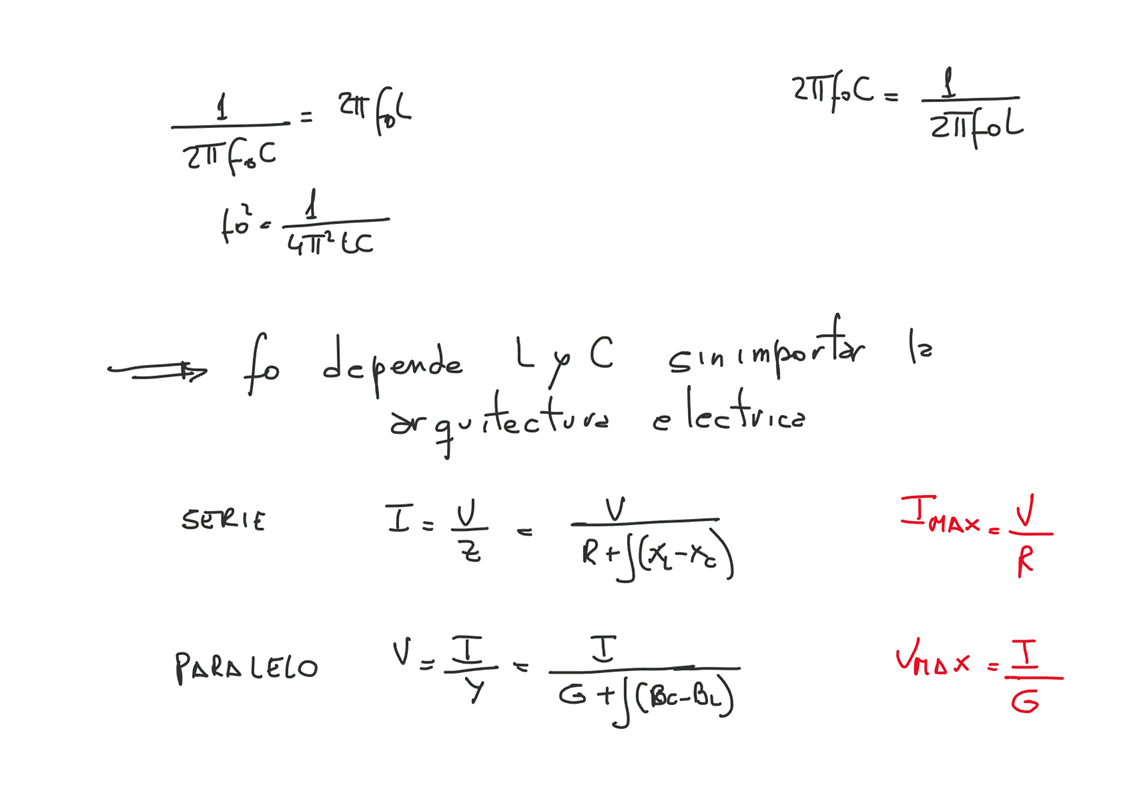 1/(2πf₀C) = 2πf₀L
2πf₀C = 1/(2πf₀L)
f₀² = 1/(4π²LC)
⟹ f₀ depende L y C sin importar la
arquitectura electrica
SERIE I = V/Z = V/(R+j(XL-XC)) IMAX = V/R
PARALELO V = I/Y = I/(G+j(BC-BL)) VMAX = I/G